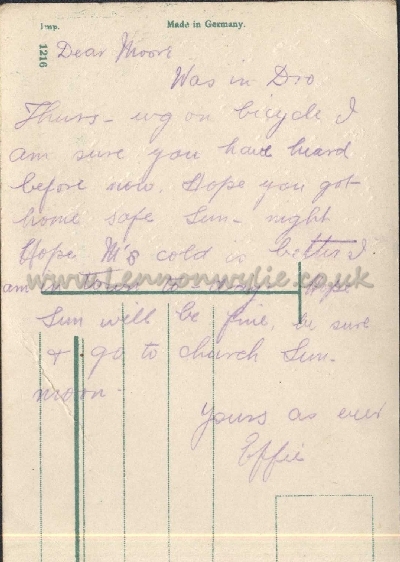 Imp.
Made in Germany.
1216
Dear Moore
Was in Dro
Thurs- on bicycle I
am sure you have heard
before now. Hope you got
home safe Sun- night
Hope M's cold is better I.
www.lennonwylie.co.uk
am Hope
Sun will be fine, be sure
+ go to church Sun-
noon-
Yours as ever
Effie